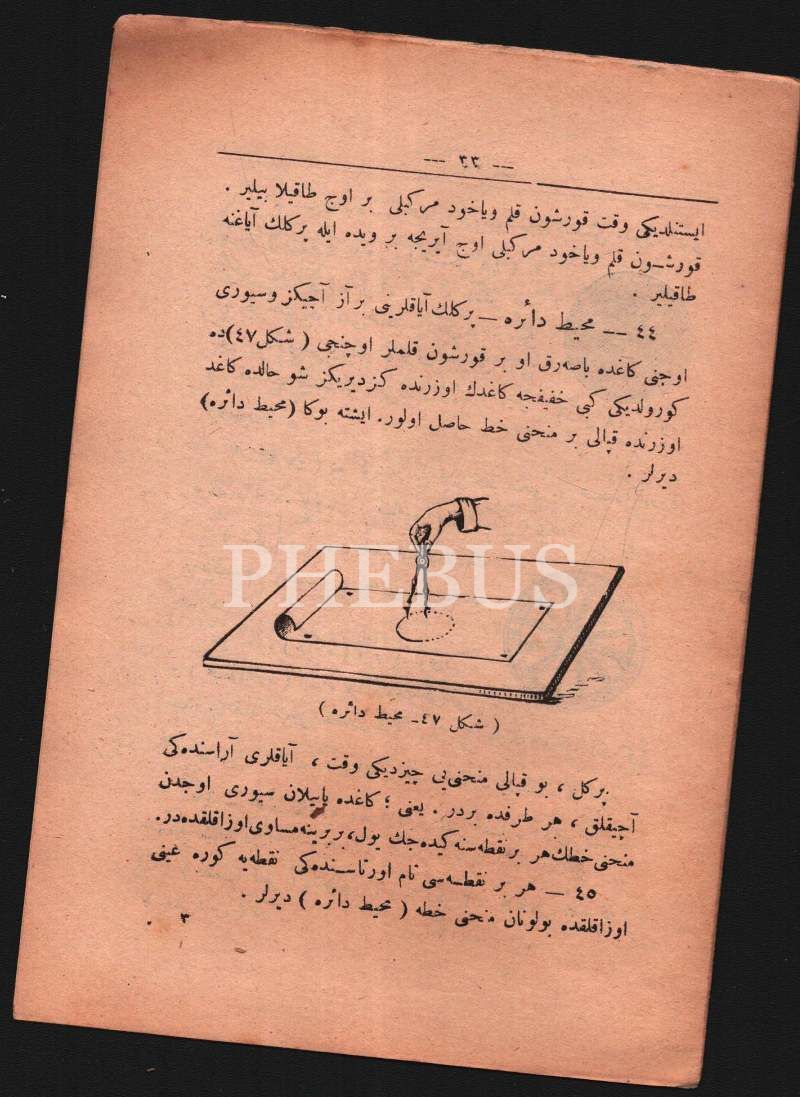 — ٣٣ —
ایستنلدیكی وقت قورشون قلم ویاخود مركبلی بر اوج طاقیلا بیلیر .
قورشون قلم ویاخود مركبلی اوج آیریجه بر ویده ایله پركلك آیاغنه
طاقیلیر .
٤٤ — محیط دائره — پركلك آیاقلرینی بر آز آچیكز وسیوری
اوجنی كاغده باصه‌رق او بر قورشون قلملر اوچنجی ( شكل ٤٧) ده
كورولدیكی كبی خفیفجه كاغدك اوزرنده كزدیریكز شو حالده كاغد
اوزرنده قپالی بر منحنی خط حاصل اولور. ایشته بوكا (محیط دائره)
دیرلر .
PHEBUS
( شكل ٤٧ـ محیط دائره )
پركل ، بو قپالی منحنی‌یی چیزدیكی وقت ، آیاقلری آراسنده‌كی
آچیقلق ، هر طرفده بردر . یعنی ؛ كاغده یاپیلان سیوری اوجدن
منحنی خطك هر بر نقطه‌سنه كیده‌جك یول، بربرینه مساوی اوزاقلقده‌در.
٤٥ — هر بر نقطه‌سی تام اورتاسنده‌كی نقطه‌یه كوره عینی
اوزاقلقده بولونان منحنی خطه ( محیط دائره ) دیرلر .
٣